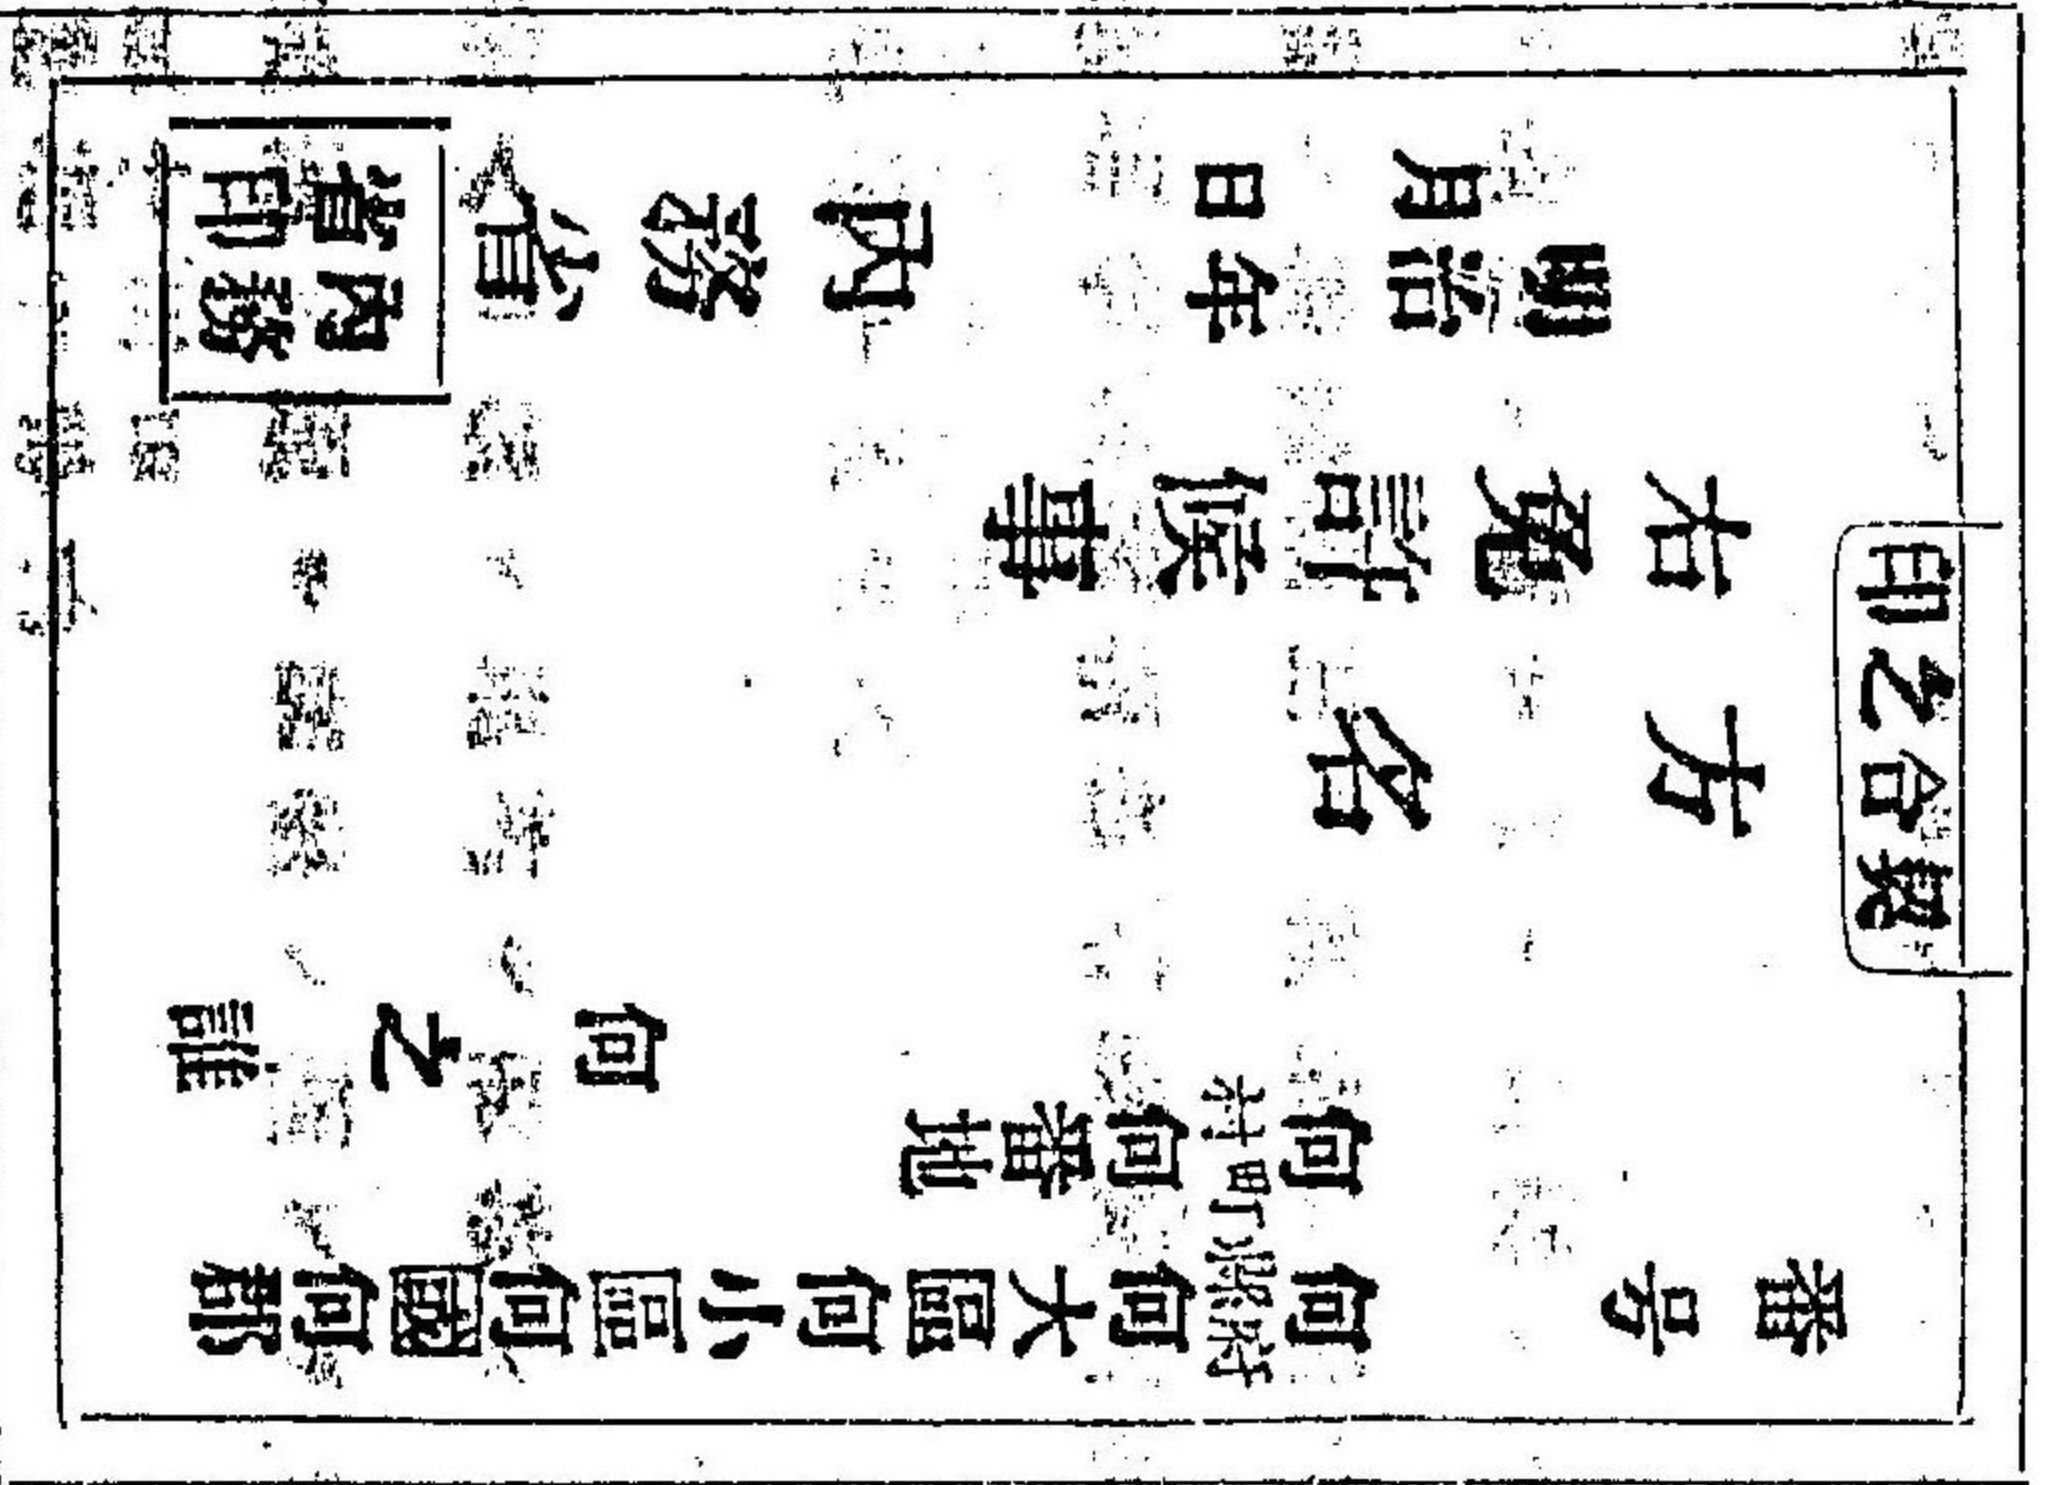 契合之印
番号
何府縣何大區何小區何國何郡
何町村何番地
何之誰
方名
右免許候事
明治年
月日
内務省
内務
省印